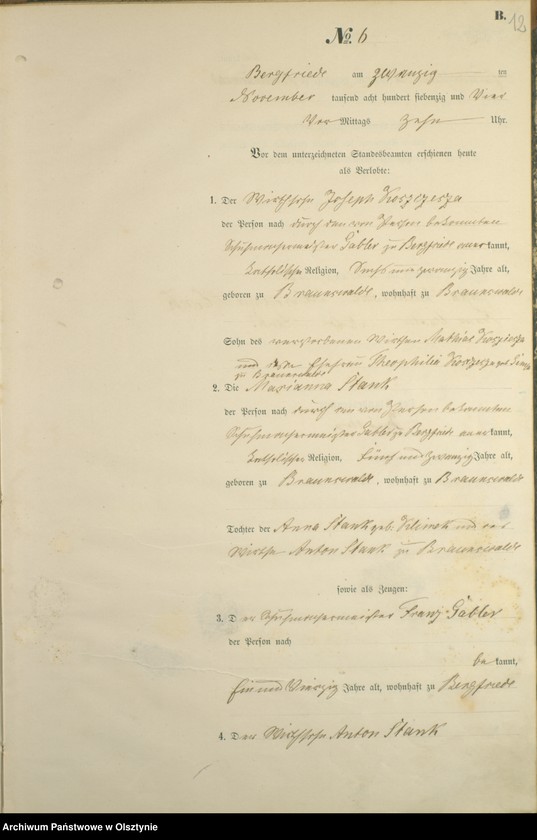 B.
12
№ 6
Bergfriede am zwanzig ten
November tausend acht hundert siebenzig und Vier
Vor Mittags Zehn Uhr.
Vor dem unterzeichneten Standesbeamten erschienen heute
als Verlobte:
1. Der Wirthssohn Joseph
der Person nach durch den von Person bekannten
Schuhmachermeister Gabler zu Bergfriede anerkannt,
katholischer Religion, Sechs und zwanzig Jahre alt,
geboren zu Braunswalde, wohnhaft zu Braunswalde
Sohn des verstorbenen Wirthen Mathias
und Ehefrau Theophilia geb.
zu Braunswalde
2. Die Marianna Stank
der Person nach durch den von Person bekannten
Schuhmachermeister Gabler zu Bergfriede anerkannt,
katholischer Religion, Fünf und zwanzig Jahre alt,
geboren zu Braunswalde, wohnhaft zu Braunswalde
Tochter der Anna Stank geb. und des
Wirths Anton Stank zu Braunswalde
sowie als Zeugen:
3. Der Schuhmachermeister Franz Gabler
der Person nach
bekannt,
Ein und Vierzig Jahre alt, wohnhaft zu Bergfriede
4. Der Wirthssohn Anton Stank
Archiwum Państwowe w Olsztynie